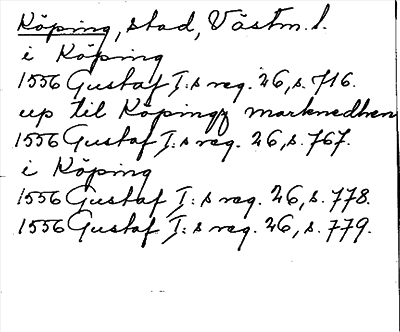 Köping, stad, Västm. l.
i Köping
1556 Gustaf I:s reg. 26, s. 716.
up til Köpings marknedhen
1556 Gustaf I:s reg. 26, s. 767.
i Köping
1556 Gustaf I:s reg. 26, s. 778.
1556 Gustaf I:s reg. 26, s. 779.